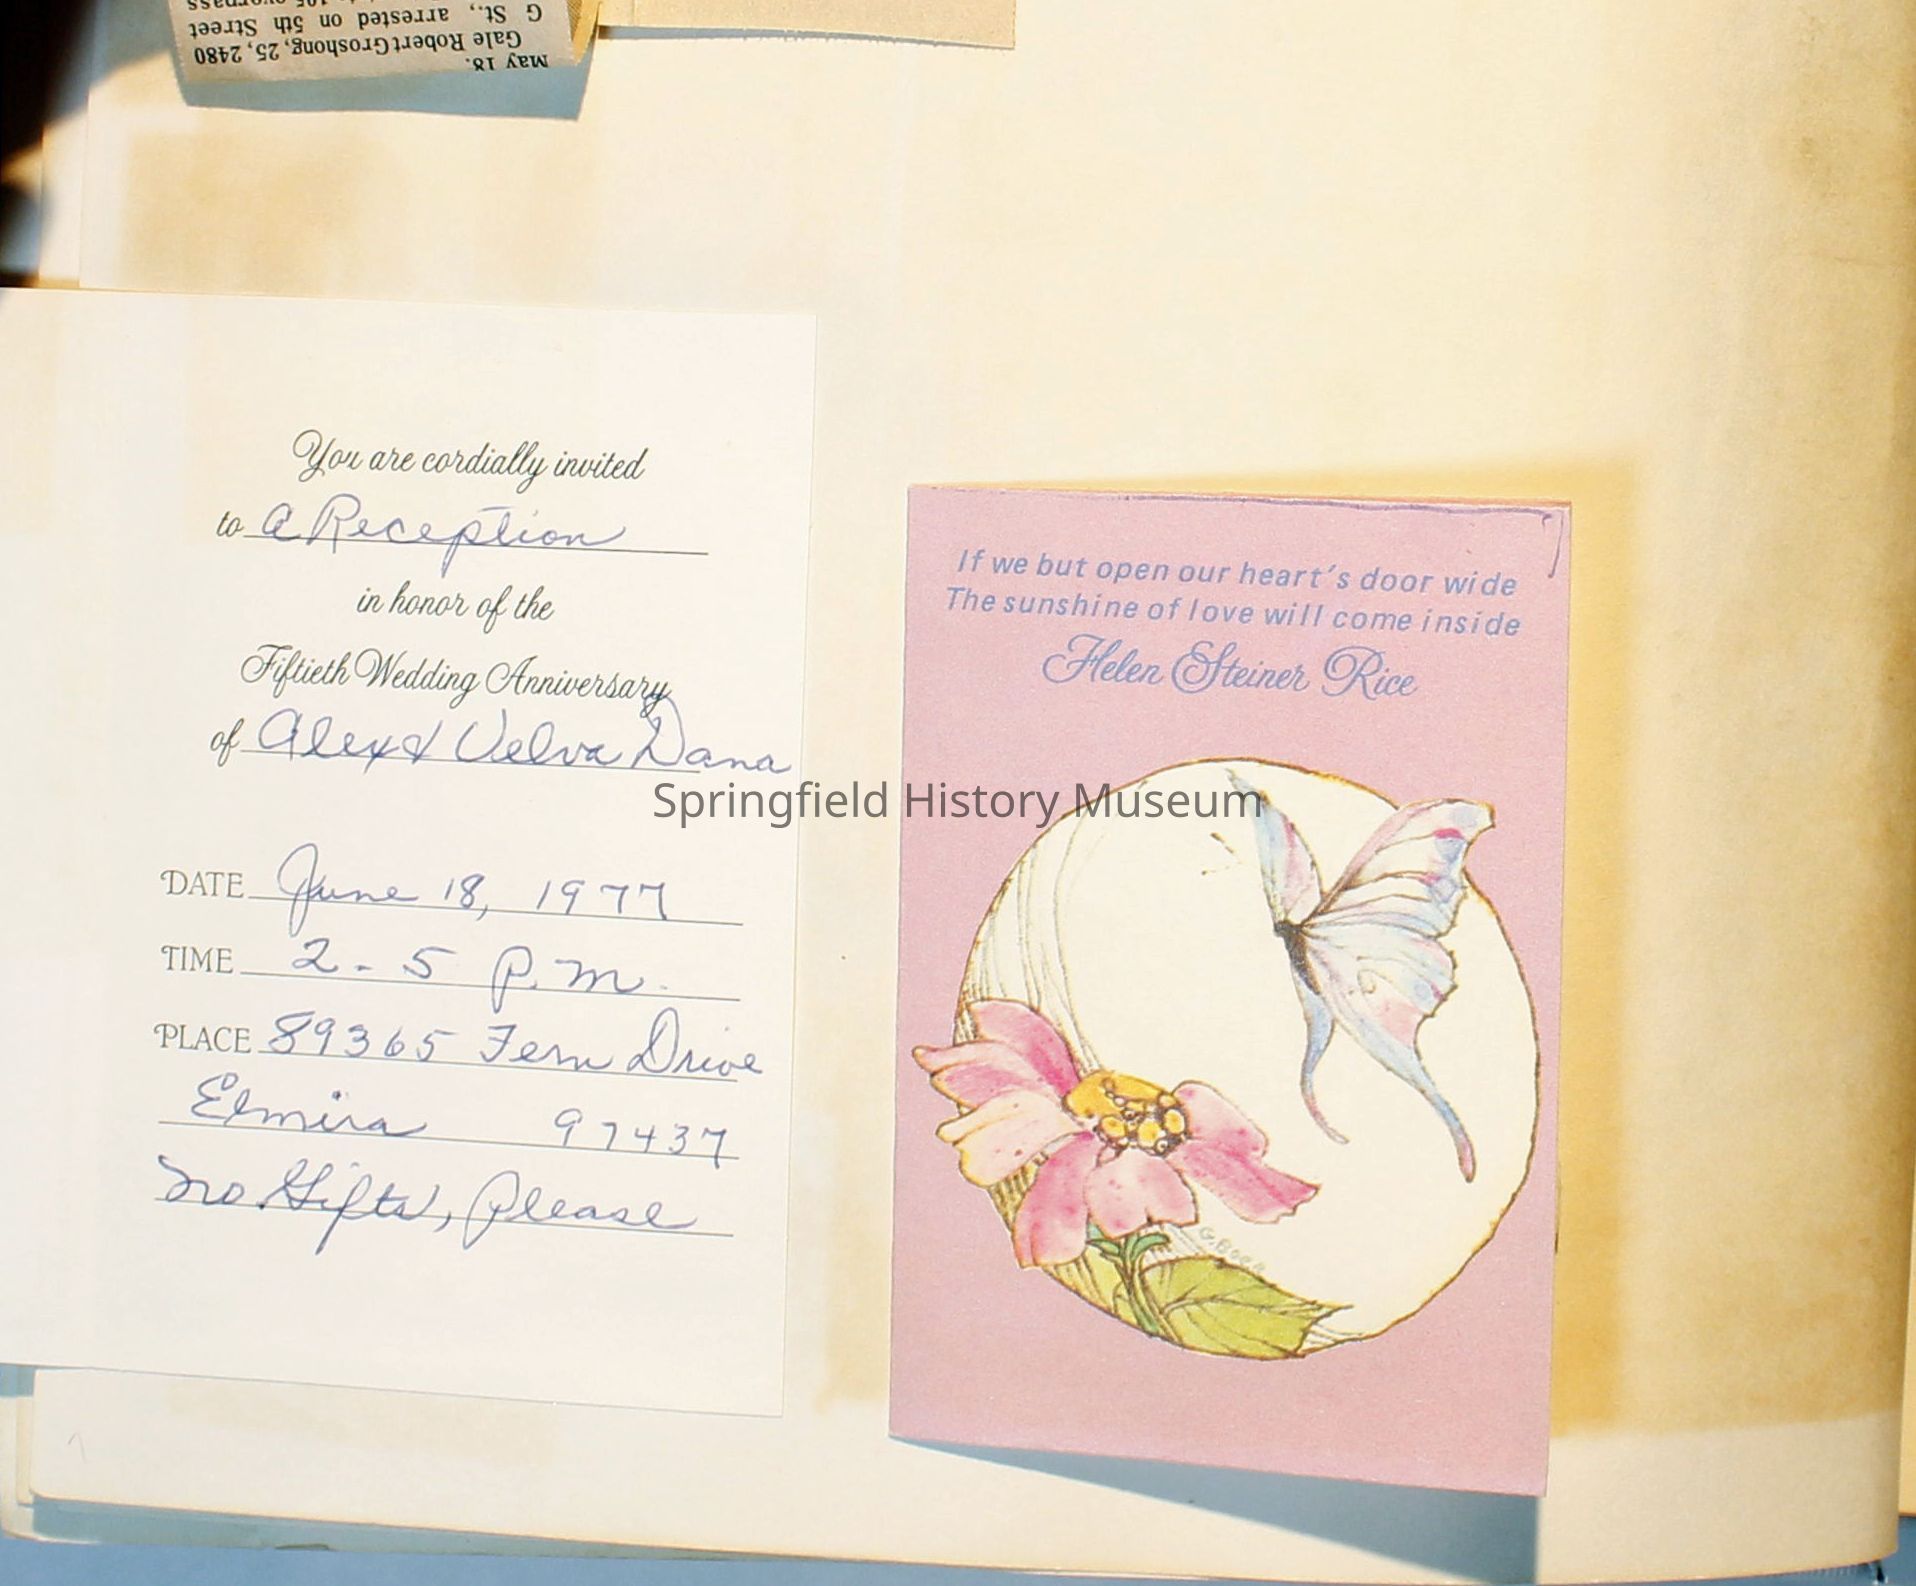 May 18.
Gale Robert Groshong, 25, 2480
G St., arrested on 5th Street
You are cordially invited
to a Reception
in honor of the
Fiftieth Wedding Anniversary
of Alex & Velva Dana
DATE June 18, 1977
TIME 2 - 5 P.M.
PLACE 89365 Fern Drive
Elmira 97437
No Gifts, Please
If we but open our heart's door wide
The sunshine of love will come inside
Helen Steiner Rice
Springfield History Museum